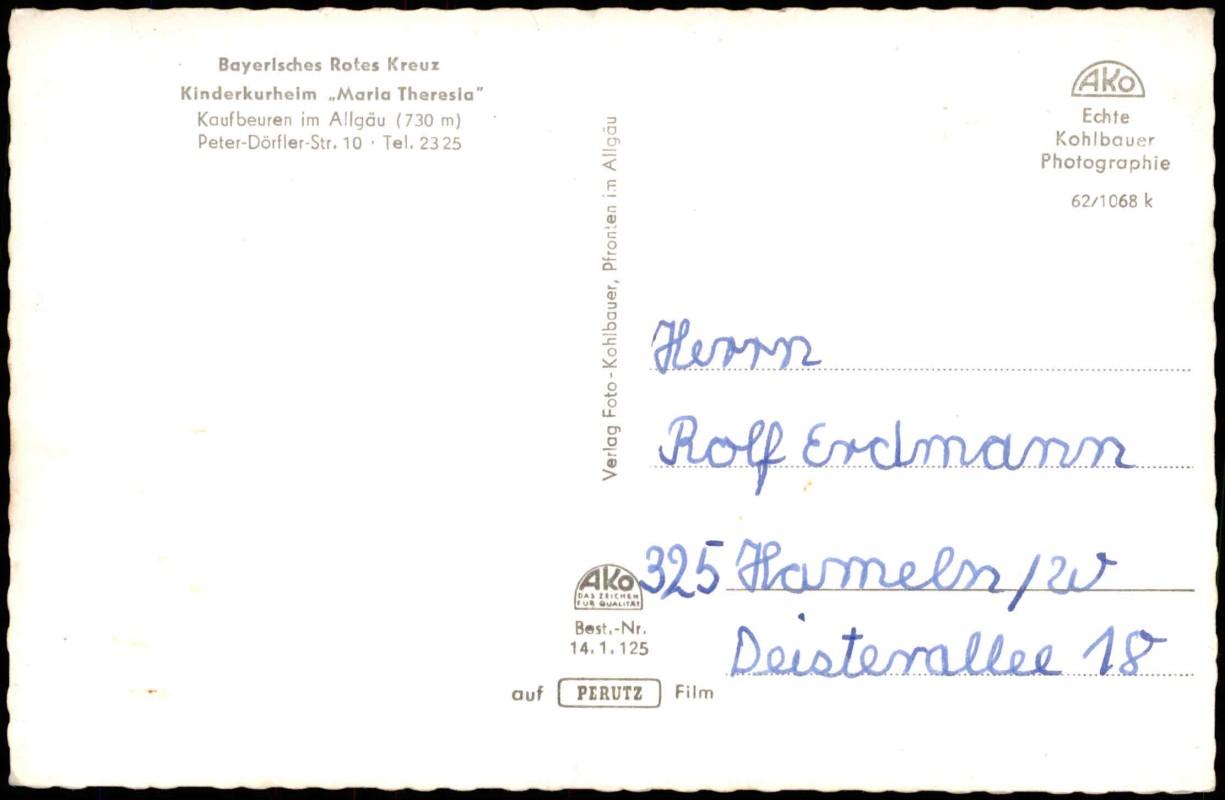 Bayerisches Rotes Kreuz
Kinderkurheim „Maria Theresia”
Kaufbeuren im Allgäu (730 m)
Peter-Dörfler-Str. 10 · Tel. 2325
Verlag Foto-Kohlbauer, Pfronten im Allgäu
AKO
Echte
Kohlbauer
Photographie
62/1068 k
Herrn
Rolf Erdmann
325 Hameln /W
Deisterallee 18
AKO
DAS ZEICHEN
FÜR QUALITÄT
Best.-Nr.
14.1.125
auf PERUTZ Film